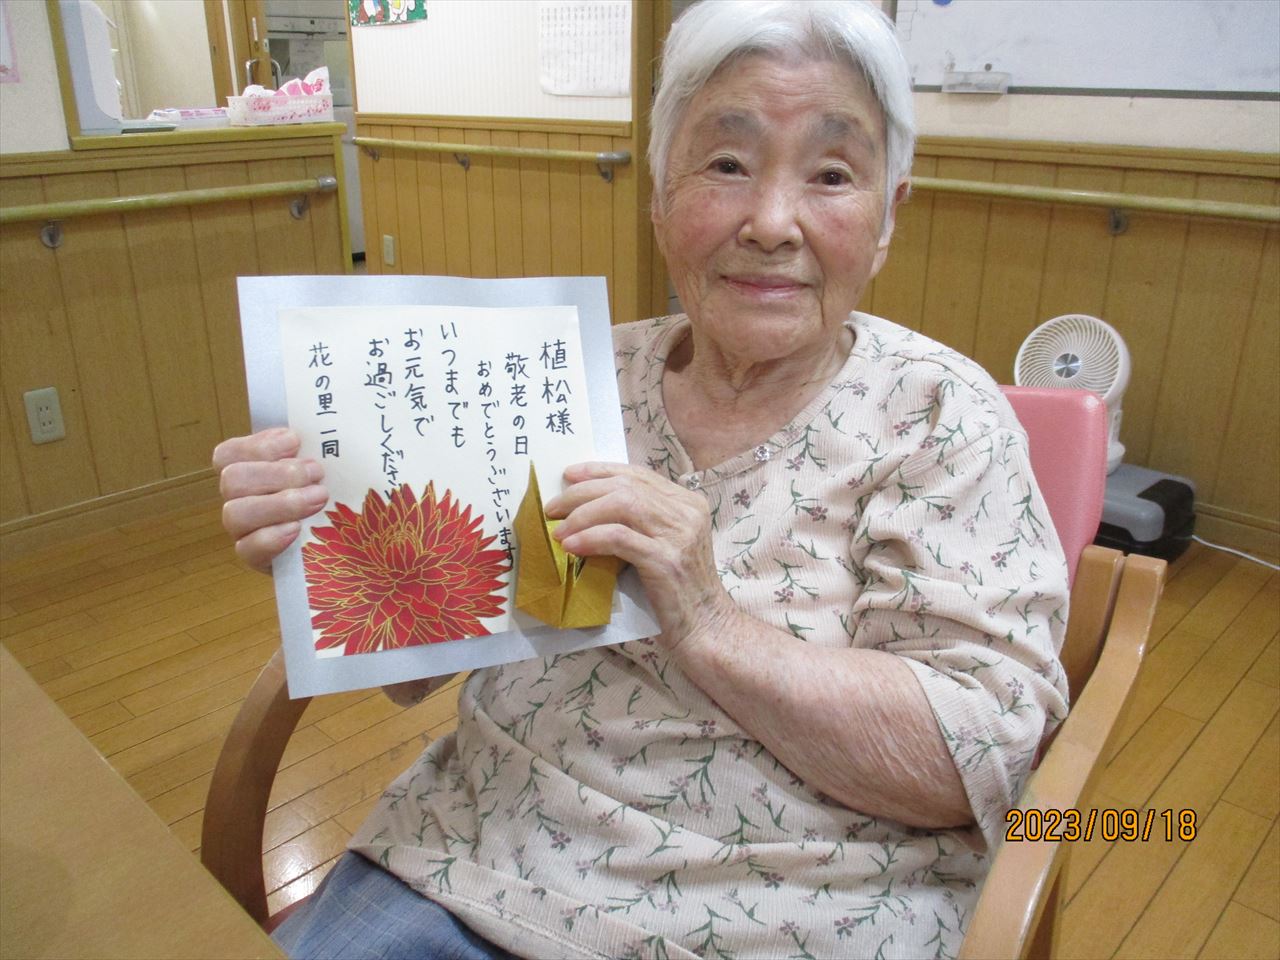 植松様
敬老の日
おめでとうございます
いつまでも
お元気で
お過ごしください
花の里一同
2023/09/18